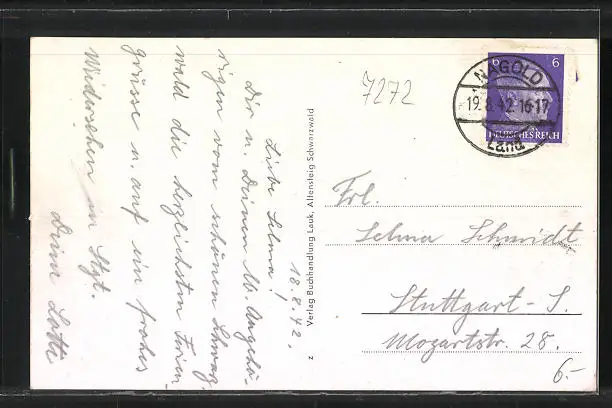 18.8.42.
Liebe Selma!
Dir u. Deinen lb. Angehö-
rigen vom schönen Schwarz-
wald die herzlichsten Ferien-
grüsse u. auf ein frohes
Wiedersehen in Stgt.
Deine Lotte
z Verlag Buchhandlung Lauk, Altensteig Schwarzwald
7272
6 6
DEUTSCHES REICH
NAGOLD
19.8.42.16-17
Land
Frl.
Selma Schmidt
Stuttgart-S.
Mozartstr. 28.
6.-